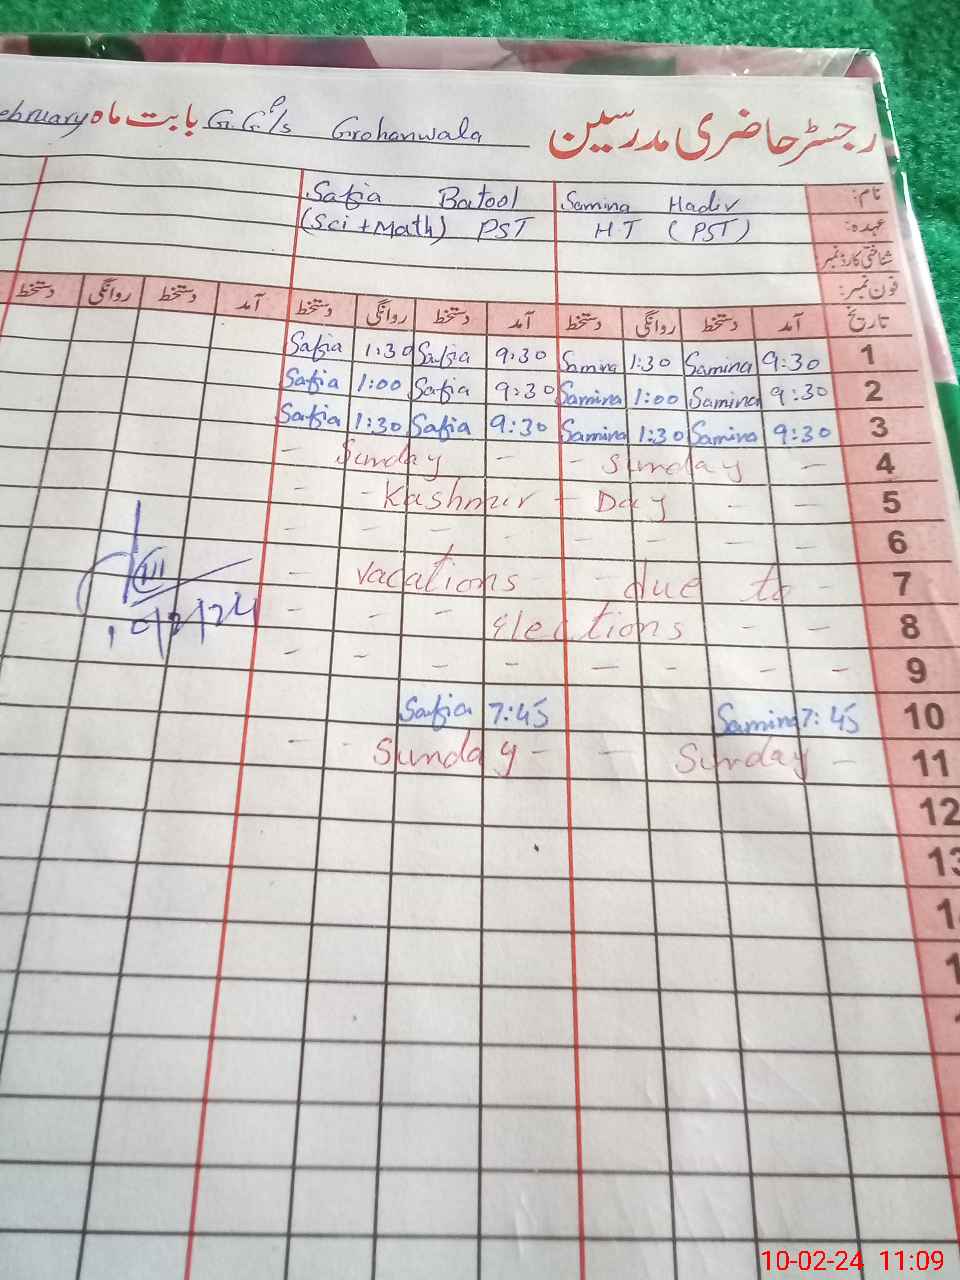 رجسٹر حاضری مدرسین G.GP/s Grohanwala بابت ماه ebruary
نام: Samina Hadir Safia Batool
عہدہ: H.T (PST) (Sci+Math) PST
شناختی کارڈ نمبر:
فون نمبر:
تاریخ آمد دستخط روانگی دستخط آمد دستخط روانگی دستخط آمد دستخط روانگی دستخط
1 9:30 Samina 1:30 Samina 9:30 Safia 1:30 Safia
2 9:30 Samina 1:00 Samina 9:30 Safia 1:00 Safia
3 9:30 Samina 1:30 Samina 9:30 Safia 1:30 Safia
4 - Sunday - - Sunday -
5 Kashmir - Day
6
7 vacations due to
8 elections
9
10 7:45 Samina 7:45 Safia
11 - Sunday - - Sunday -
12
13
10/2/24
10-02-24 11:09